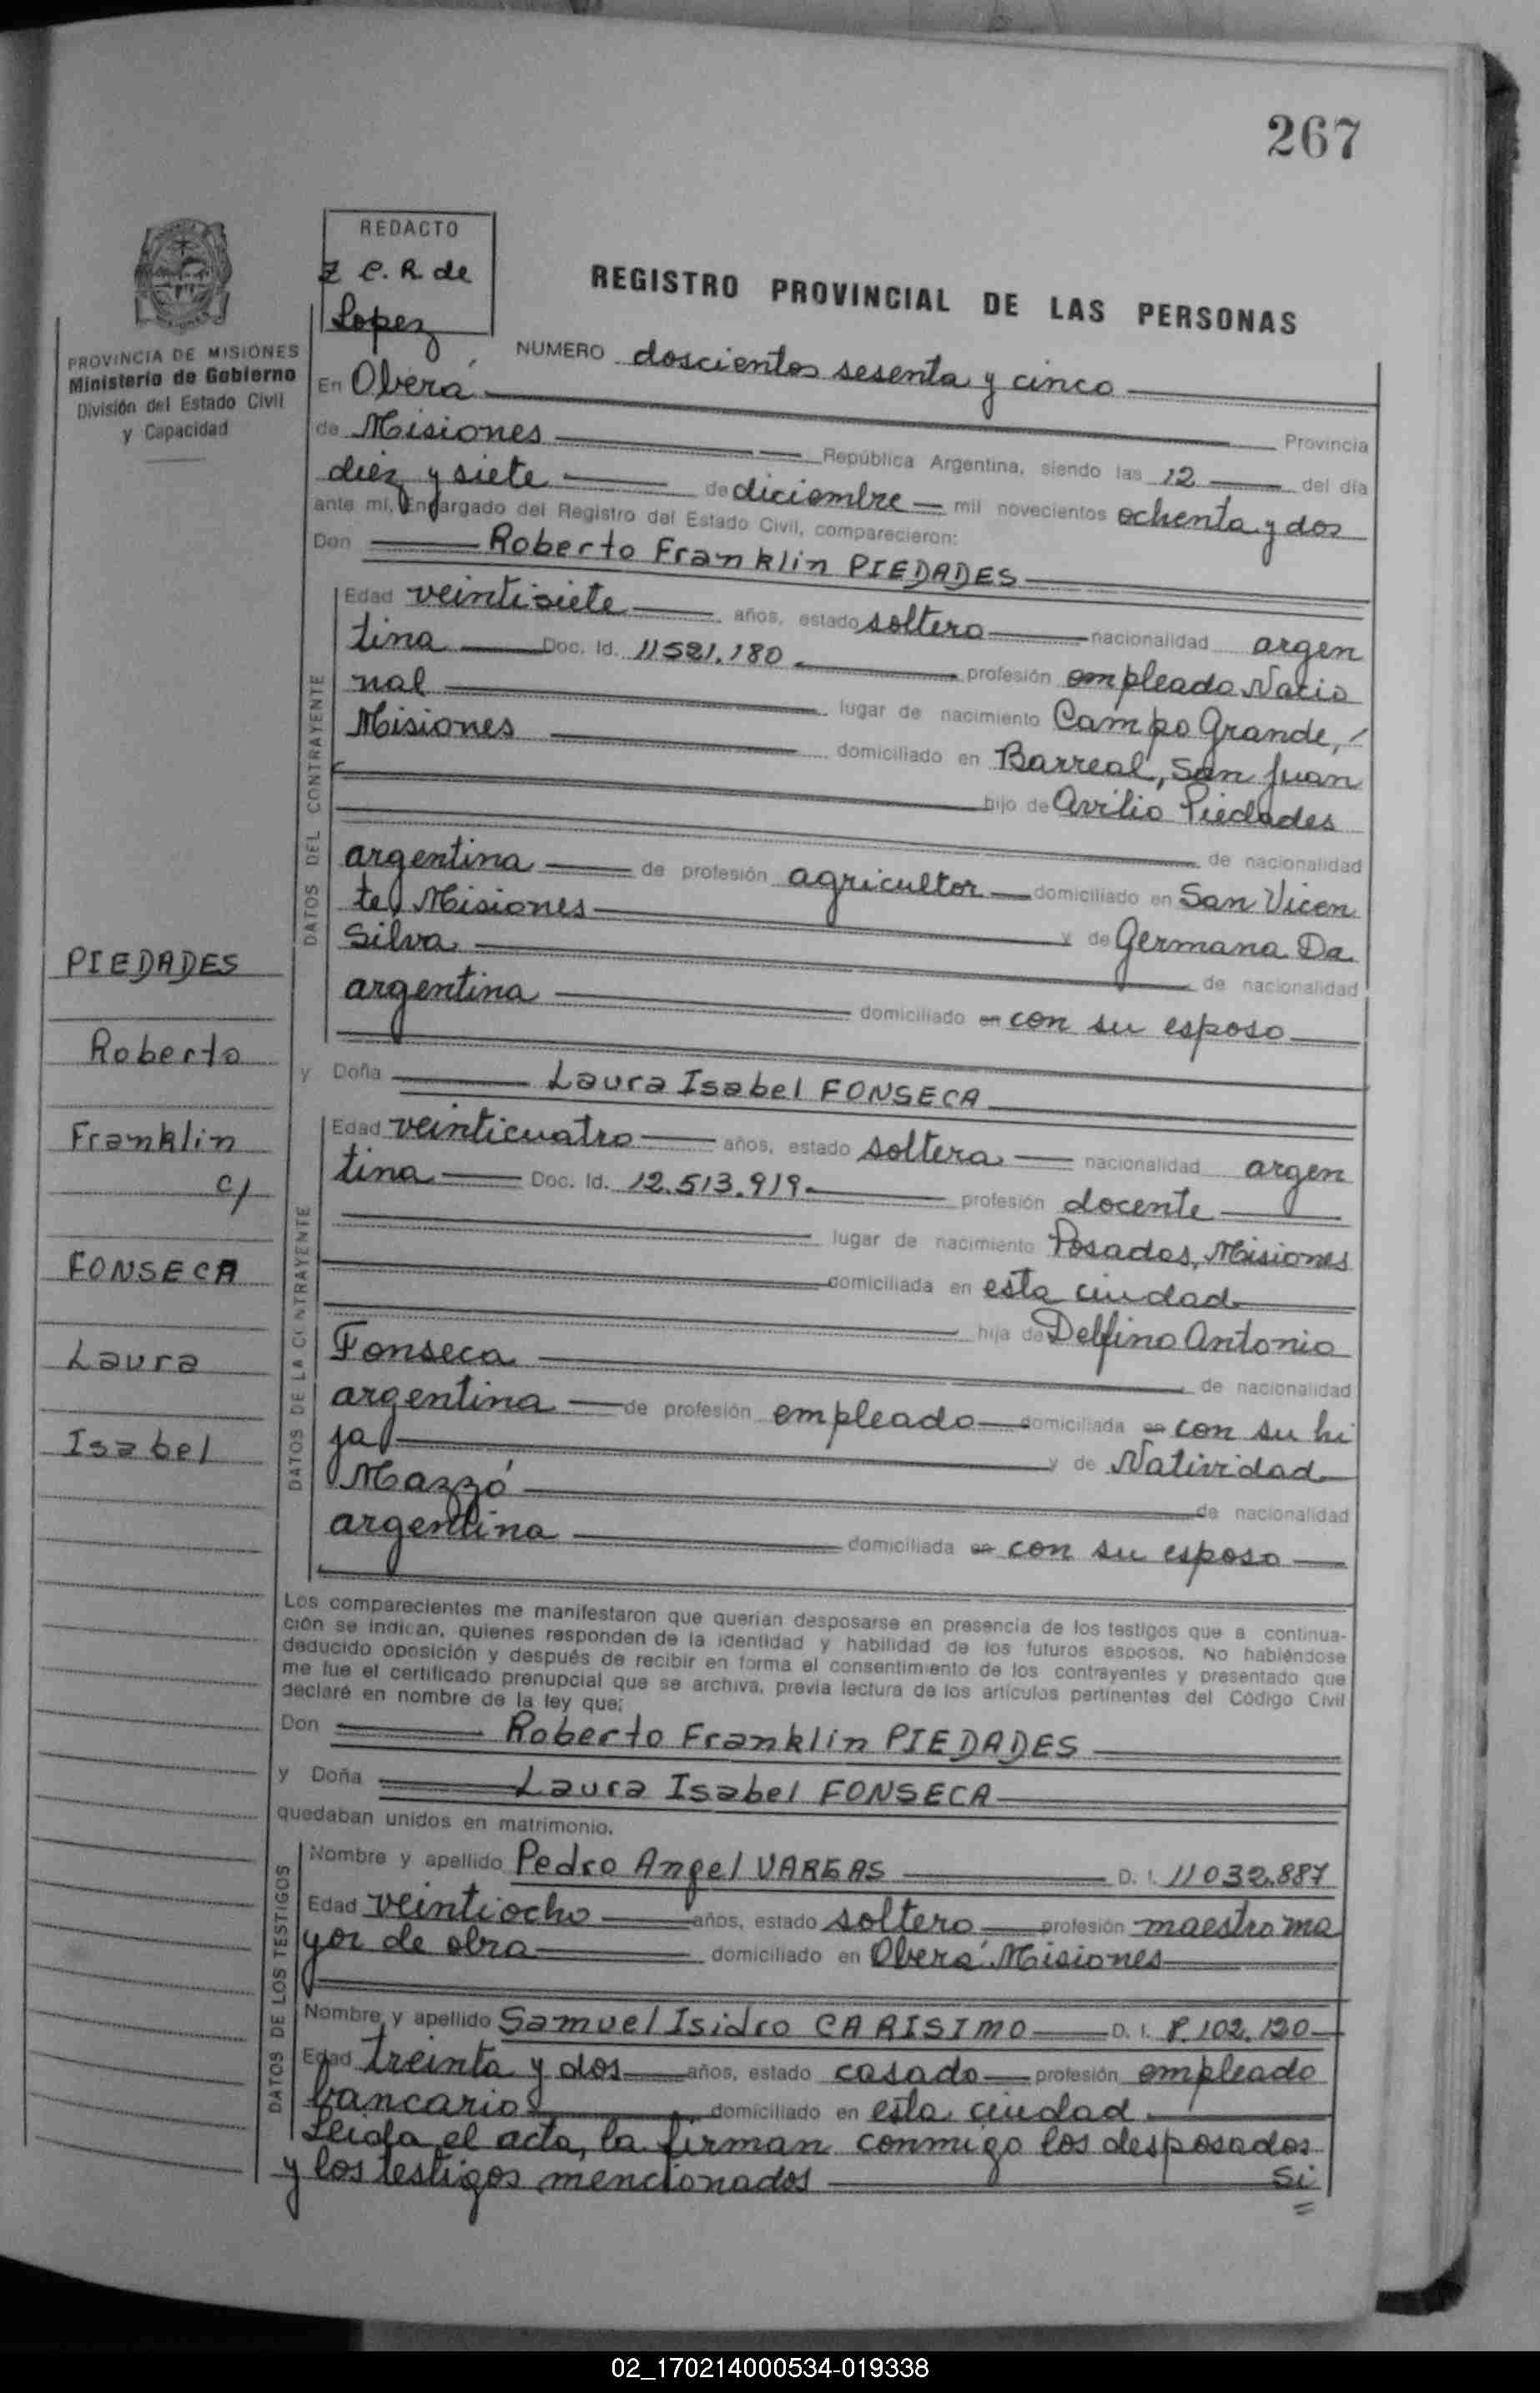 267
REDACTO
C. R. de
Lopez
REGISTRO PROVINCIAL DE LAS PERSONAS
PROVINCIA DE MISIONES
Ministerio de Gobierno
División del Estado Civil
y Capacidad
NUMERO doscientos sesenta y cinco
En Oberá
Provincia
de Misiones República Argentina, siendo las 12 del día
diez y siete de diciembre mil novecientos ochenta y dos
ante mí, Encargado del Registro del Estado Civil, comparecieron:
Don Roberto Franklin PIEDADES
DATOS DEL CONTRAYENTE
Edad veintisiete años, estado soltero nacionalidad argen
tina Doc. Id. 11521.180 profesión empleado Nacio
nal lugar de nacimiento Campo Grande,
Misiones domiciliado en Barreal, San Juan
hijo de Avilio Piedades
de nacionalidad
argentina de profesión agricultor domiciliado en San Vicen
te, Misiones y de Germana Da
Silva de nacionalidad
argentina domiciliado en con su esposo
y Doña Laura Isabel FONSECA
DATOS DE LA CONTRAYENTE
Edad veinticuatro años, estado soltera nacionalidad argen
tina Doc. Id. 12.513.919 profesión docente
lugar de nacimiento Posadas, Misiones
domiciliada en esta ciudad
hija de Delfino Antonio
Fonseca de nacionalidad
argentina de profesión empleado domiciliada en con su hi
ja y de Natividad
Mazzó de nacionalidad
argentina domiciliada en con su esposo
PIEDADES
Roberto
Franklin
c/
FONSECA
Laura
Isabel
Los comparecientes me manifestaron que querían desposarse en presencia de los testigos que a continua-
ción se indican, quienes responden de la identidad y habilidad de los futuros esposos. No habiéndose
deducido oposición y después de recibir en forma el consentimiento de los contrayentes y presentado que
me fue el certificado prenupcial que se archiva, previa lectura de los artículos pertinentes del Código Civil
declaré en nombre de la ley que;
Don Roberto Franklin PIEDADES
y Doña Laura Isabel FONSECA
quedaban unidos en matrimonio.
DATOS DE LOS TESTIGOS
Nombre y apellido Pedro Angel VARGAS D. I. 11032.887
Edad veintiocho años, estado soltero profesión maestro ma
yor de obra domiciliado en Oberá Misiones
Nombre y apellido Samuel Isidro CARISIMO D. I. 8.102.120
Edad treinta y dos años, estado casado profesión empleado
bancario domiciliado en esta ciudad
Leida el acta, la firman conmigo los desposados
y los testigos mencionados Si
02_170214000534-019338